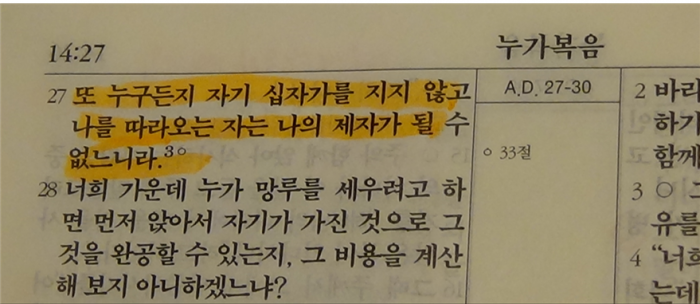 14:27
누가복음
27 또 누구든지 자기 십자가를 지지 않고
나를 따라오는 자는 나의 제자가 될 수
없느니라.³⁰
28 너희 가운데 누가 망루를 세우려고 하
면 먼저 앉아서 자기가 가진 것으로 그
것을 완공할 수 있는지, 그 비용을 계산
해 보지 아니하겠느냐?
A.D. 27-30
ㅇ 33절
2 바리
하기
함께
3 ○
유를
4 “너희
는데